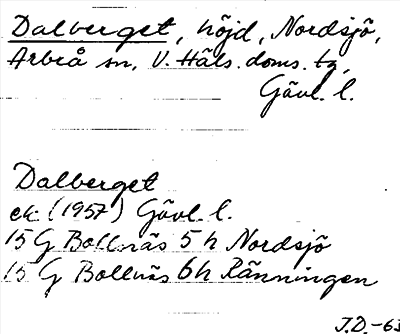 Dalberget, höjd, Nordsjö,
Arbrå sn, V. Häls. doms. tg,
Gävl. l.
Dalberget
ek (1957) Gävl. l.
15 G Bollnäs 5 h Nordsjö
15 G Bollnäs 6h Ränningen
J.D.-63